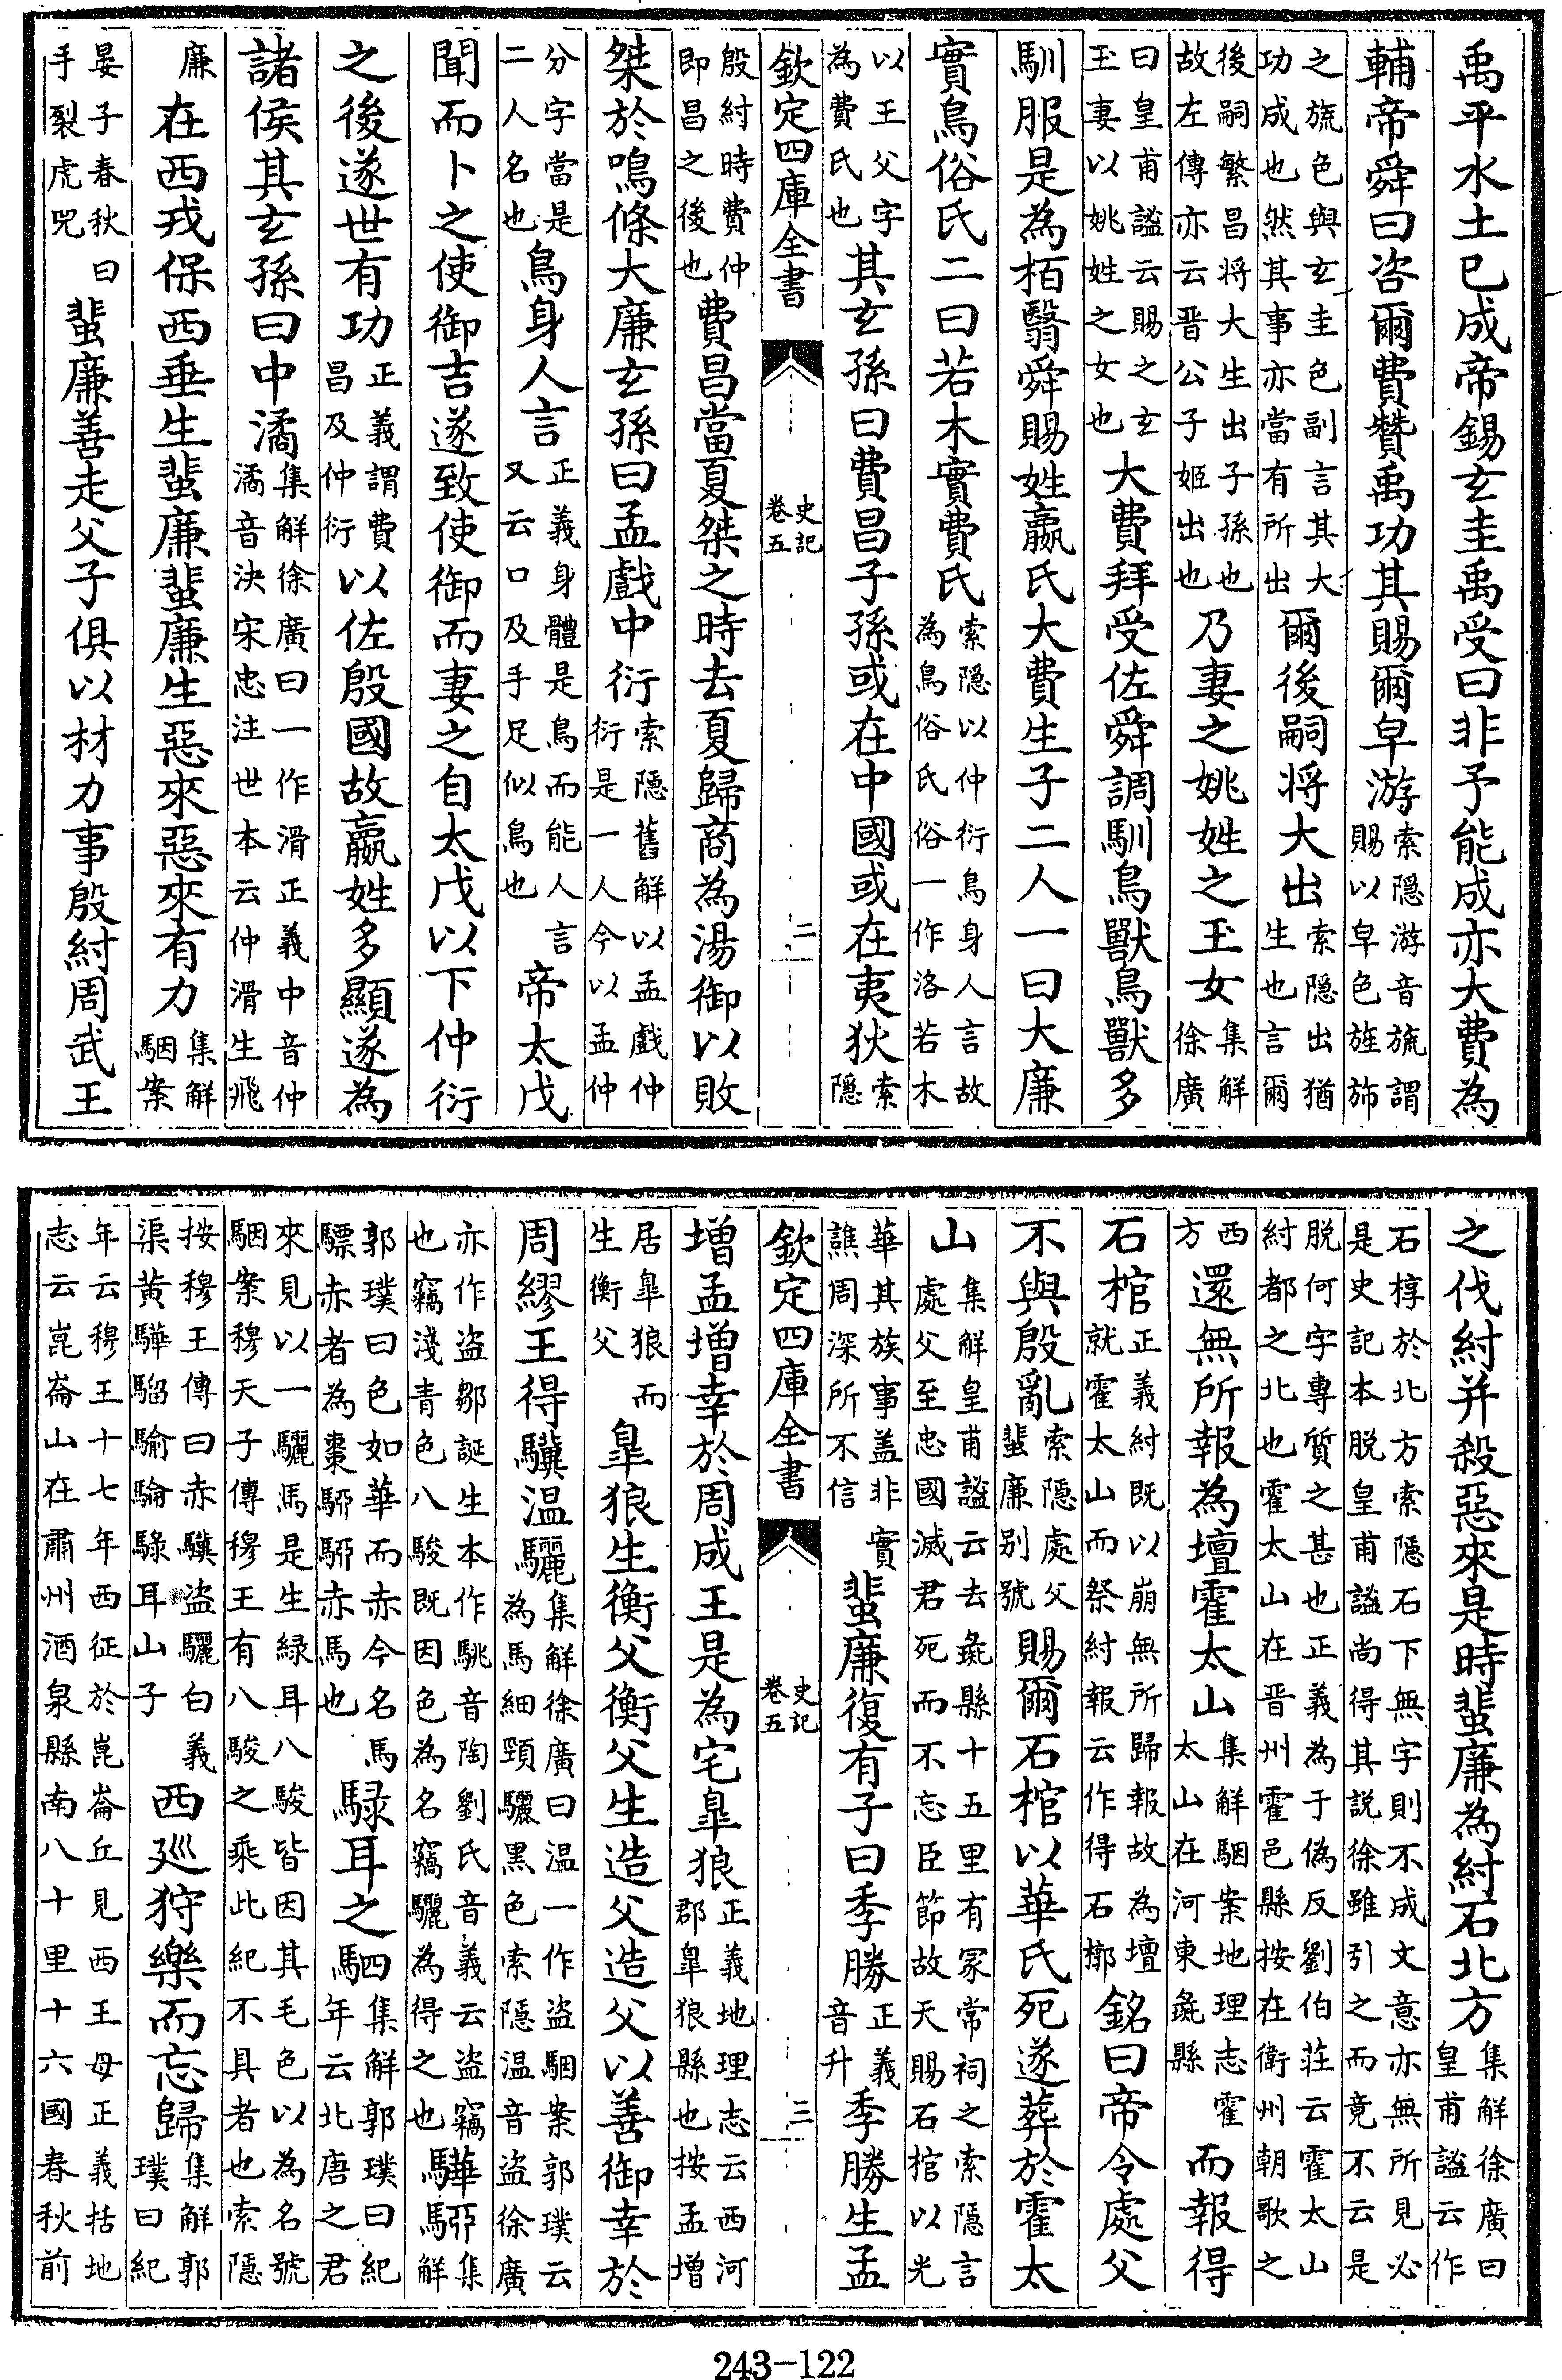 禹平水土已成帝錫玄圭禹受曰非予能成亦大費為
輔帝舜曰咨爾費贊禹功其賜爾皁游索隠游音旒謂賜以皁色旌斾
之旒色與玄圭色副言其大功成也然其事亦當有所出爾後嗣将大出索隠出猶生也言爾
後嗣繁昌将大生出子孫也故左傳亦云晋公子姬出也乃妻之姚姓之玉女集解徐廣
曰皇甫謐云賜之玄玉妻以姚姓之女也大費拜受佐舜調馴鳥獸鳥獸多
馴服是為栢翳舜賜姓嬴氏大費生子二人一曰大廉
實鳥俗氏二曰若木實費氏索隠以仲衍鳥身人言故為鳥俗氏俗一作洛若木
以王父字為費氏也其玄孫曰費昌子孫或在中國或在夷狄索隠
欽定四庫全書 史記卷五 二
殷紂時費仲即昌之後也費昌當夏桀之時去夏歸商為湯御以敗
桀於鳴條大廉玄孫曰孟戲中衍索隠舊解以孟戲仲衍是一人今以孟仲
分字當是二人名也鳥身人言正義身體是鳥而能人言又云口及手足似鳥也帝太戊
聞而卜之使御吉遂致使御而妻之自太戊以下仲衍
之後遂世有功正義謂費昌及仲衍以佐殷國故嬴姓多顯遂為
諸侯其玄孫曰中潏集解徐廣曰一作滑正義中音仲潏音決宋忠注世本云仲滑生飛
廉在西戎保西垂生蜚廉蜚廉生惡來惡來有力集解駰案
晏子春秋曰手裂虎兕蜚廉善走父子俱以材力事殷紂周武王
之伐紂并殺惡來是時蜚廉為紂石北方集解徐廣曰皇甫謐云作
石椁於北方索隠石下無字則不成文意亦無所見必是史記本脱皇甫謐尚得其説徐雖引之而竟不云是
脱何字専質之甚也正義為于偽反劉伯莊云霍太山紂都之北也霍太山在晋州霍邑縣按在衛州朝歌之
西方還無所報為壇霍太山集解駰案地理志霍太山在河東彘縣而報得
石棺正義紂既以崩無所歸報故為壇就霍太山而祭紂報云作得石槨銘曰帝令處父
不與殷亂索隠處父蜚廉别號賜爾石棺以華氏死遂葬於霍太
山集解皇甫謐云去彘縣十五里有冢常祠之索隠言處父至忠國滅君死而不忘臣節故天賜石棺以光
華其族事盖非實譙周深所不信蜚廉復有子曰季勝正義音升季勝生孟
欽定四庫全書 史記卷五 三
增孟增幸於周成王是為宅皐狼正義地理志云西河郡皐狼縣也按孟增
居皐狼而生衡父皐狼生衡父衡父生造父造父以善御幸於
周繆王得驥温驪集解徐廣曰温一作盗駰案郭璞云為馬細頸驪黒色索隠温音盗徐廣
亦作盗鄒誕生本作駣音陶劉氏音義云盗竊也竊淺青色八駿既因色為名竊驪為得之也驊騮集解
郭璞曰色如華而赤今名馬驃赤者為棗騮騮赤馬也騄耳之駟集解郭璞曰紀年云北唐之君
來見以一驪馬是生緑耳八駿皆因其毛色以為名號駰案穆天子傳穆王有八駿之乘此紀不具者也索隠
按穆王傳曰赤驥盗驪白義渠黄驊騮騟騟騄耳山子西廵狩樂而忘歸集解郭璞曰紀
年云穆王十七年西征於崑崙丘見西王母正義括地志云崑崙山在肅州酒泉縣南八十里十六國春秋前
243-122